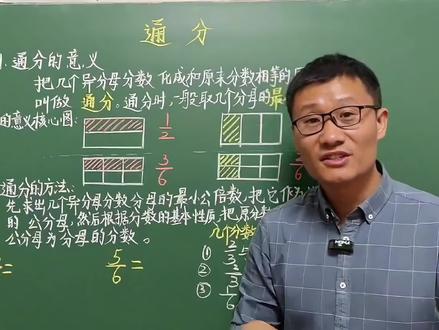 通分
1.通分的意义
把几个异分母分数化成和原来分数相等的同
叫做 通分。通分时,一般取几个分母的最
的意义核心图:
1/2
3/6
通分的方法:
先求出几个异分母分数分母的最小公倍数,把它作为
的公分母,然后根据分数的基本性质,把原分数
公分母为分母的分数。
几个分数
=
5/6 =
①
②
③ 1/6